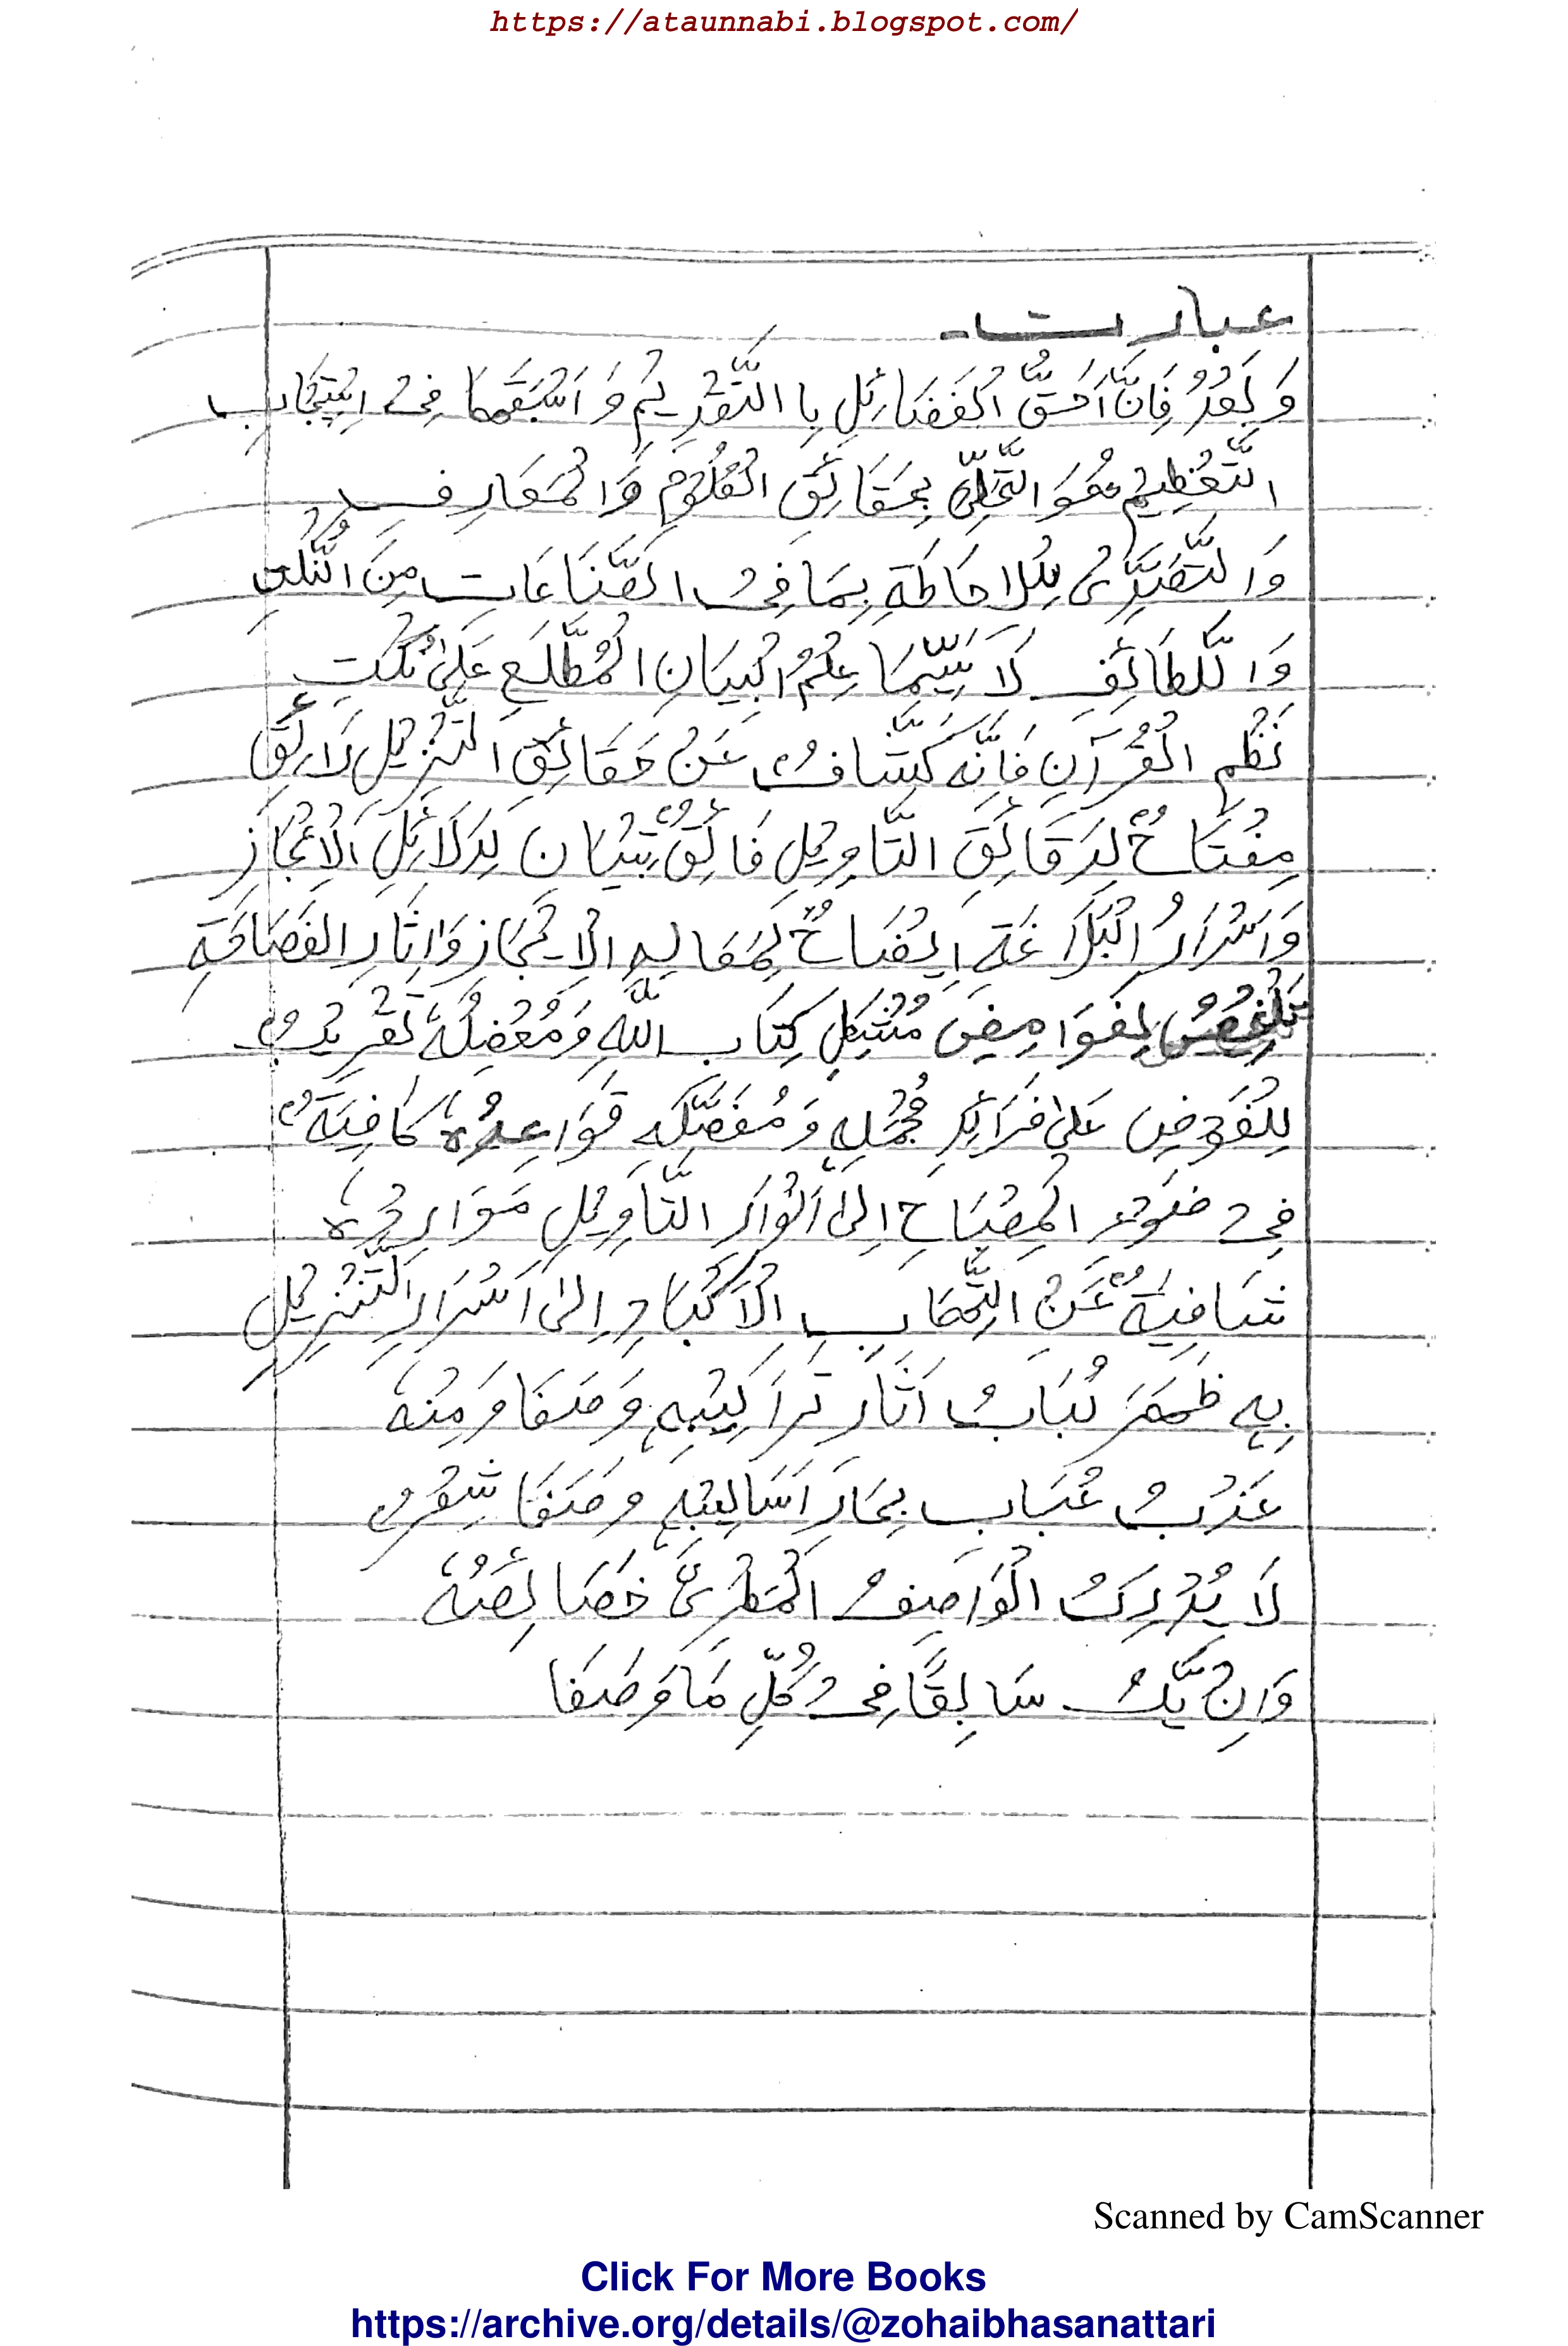 https://ataunnabi.blogspot.com/
عبارت۔
وَ بَعْدُ فَاِنَّ اَحَقَّ الْفَضَائِلِ بِا التَّقْدِيْمِ وَ اَسْبَقَهَا فِیْ اِسْتِيْجَابِ
التَّعْظِيْمِ هُوَ التَّحَلِّیْ بِحَقَائِقِ الْعُلُوْمِ وَ الْمَعَارِفِ
وَ التَّصَدِّیْ لِلْاِحَاطَةِ بِمَا فِیْ الصَّنَاعَاتِ مِنَ النُّكَتِ
وَ اللَّطَائِفِ لَا سَيِّمَا عِلْمُ الْبَيَانِ الْمُطَّلَعِ عَلیٰ نُكَتِ
نَظْمِ الْقُرْآنِ فَاِنَّهٗ كَشَّافٌ عَنْ حَقَائِقِ التَّنْزِيْلِ رَائِقٌ
مِفْتَاحٌ لِدَقَائِقِ التَّاوِيْلِ فَائِقٌ تِبْيَان لِدَلَائِلِ الْاِعْجَازِ
وَ اَسْرَارُ الْبَلَاغَةِ اِيْضَاحٌ لِمَعَالِمِ الْاِيْجَازِ وَ اٰثَارِ الفَصَاحَةِ
تَلْخِيْصٌ لِغَوَامِضِ مُشْكِلِ كِتَابِ اللّٰهِ وَ مُعْضِلُهٗ تَقْرِيْبٌ
لِلْغَوْصِ عَلیٰ فَرَائِدِ مُجْمَلِهٖ وَ مُفَصَّلِهٖ قَوَاعِدُهٗ كَافِيَةٌ
فِیْ ضَوْءِ الْمِصْبَاحِ اِلیٰ اَنْوَارِ التَّاوِيْلِ مَوَارِدُهٗ
شَافِيَةٌ عَنْ الْتِهَابِ الْاَكْبَادِ اِلیٰ اَسْرَارِ التَّنْزِيْلِ
بِهٖ ظَهَرَ لُبَابُ اٰثَارِ تَرَاكِيْبِهٖ وَ صَفَا وَ مِنْهُ
عَذْبُ عُبَابِ بِحَارِ اَسَالِيْبِهٖ وَ صَفَا شِعْرٌ
لَا يُدْرِكُ الْوَاصِفُ الْمُطْرِیْ خَصَائِصَهٗ
وَ اِنْ يَّكُ سَابِقًا فِیْ كُلِّ مَا وَصَفَا
Scanned by CamScanner
Click For More Books
https://archive.org/details/@zohaibhasanattari